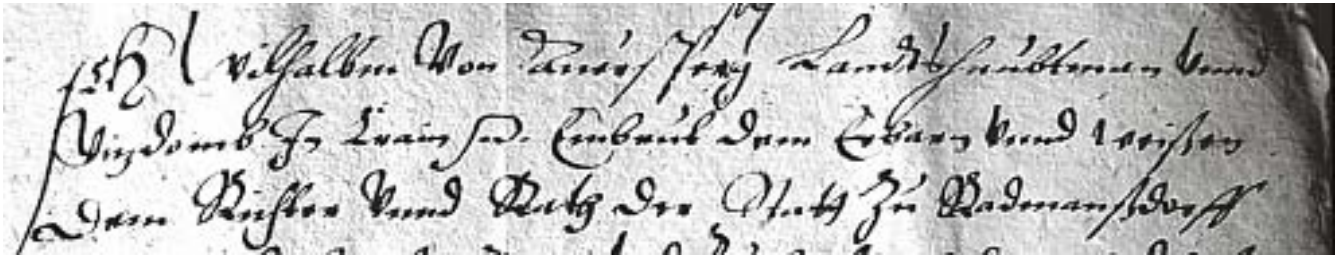 Ich Wilhalbm Von Aursperg Landtshaubtman Vnnd
Vizdomb In Crain Embeut dem Erbarn Vnnd Weisen
Dem Richter Vnnd Rath der Statt Zu Radmansdorff